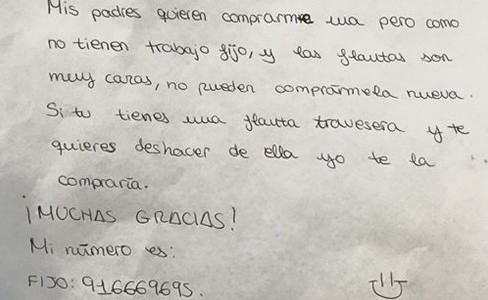 Mis padres quieren comprarme una pero como
no tienen trabajo fijo, y las flautas son
muy caras, no pueden comprármela nueva.
Si tu tienes una flauta travesera y te
quieres deshacer de ella yo te la
compraría.
¡MUCHAS GRACIAS!
Mi número es:
FIJO: 916669695.